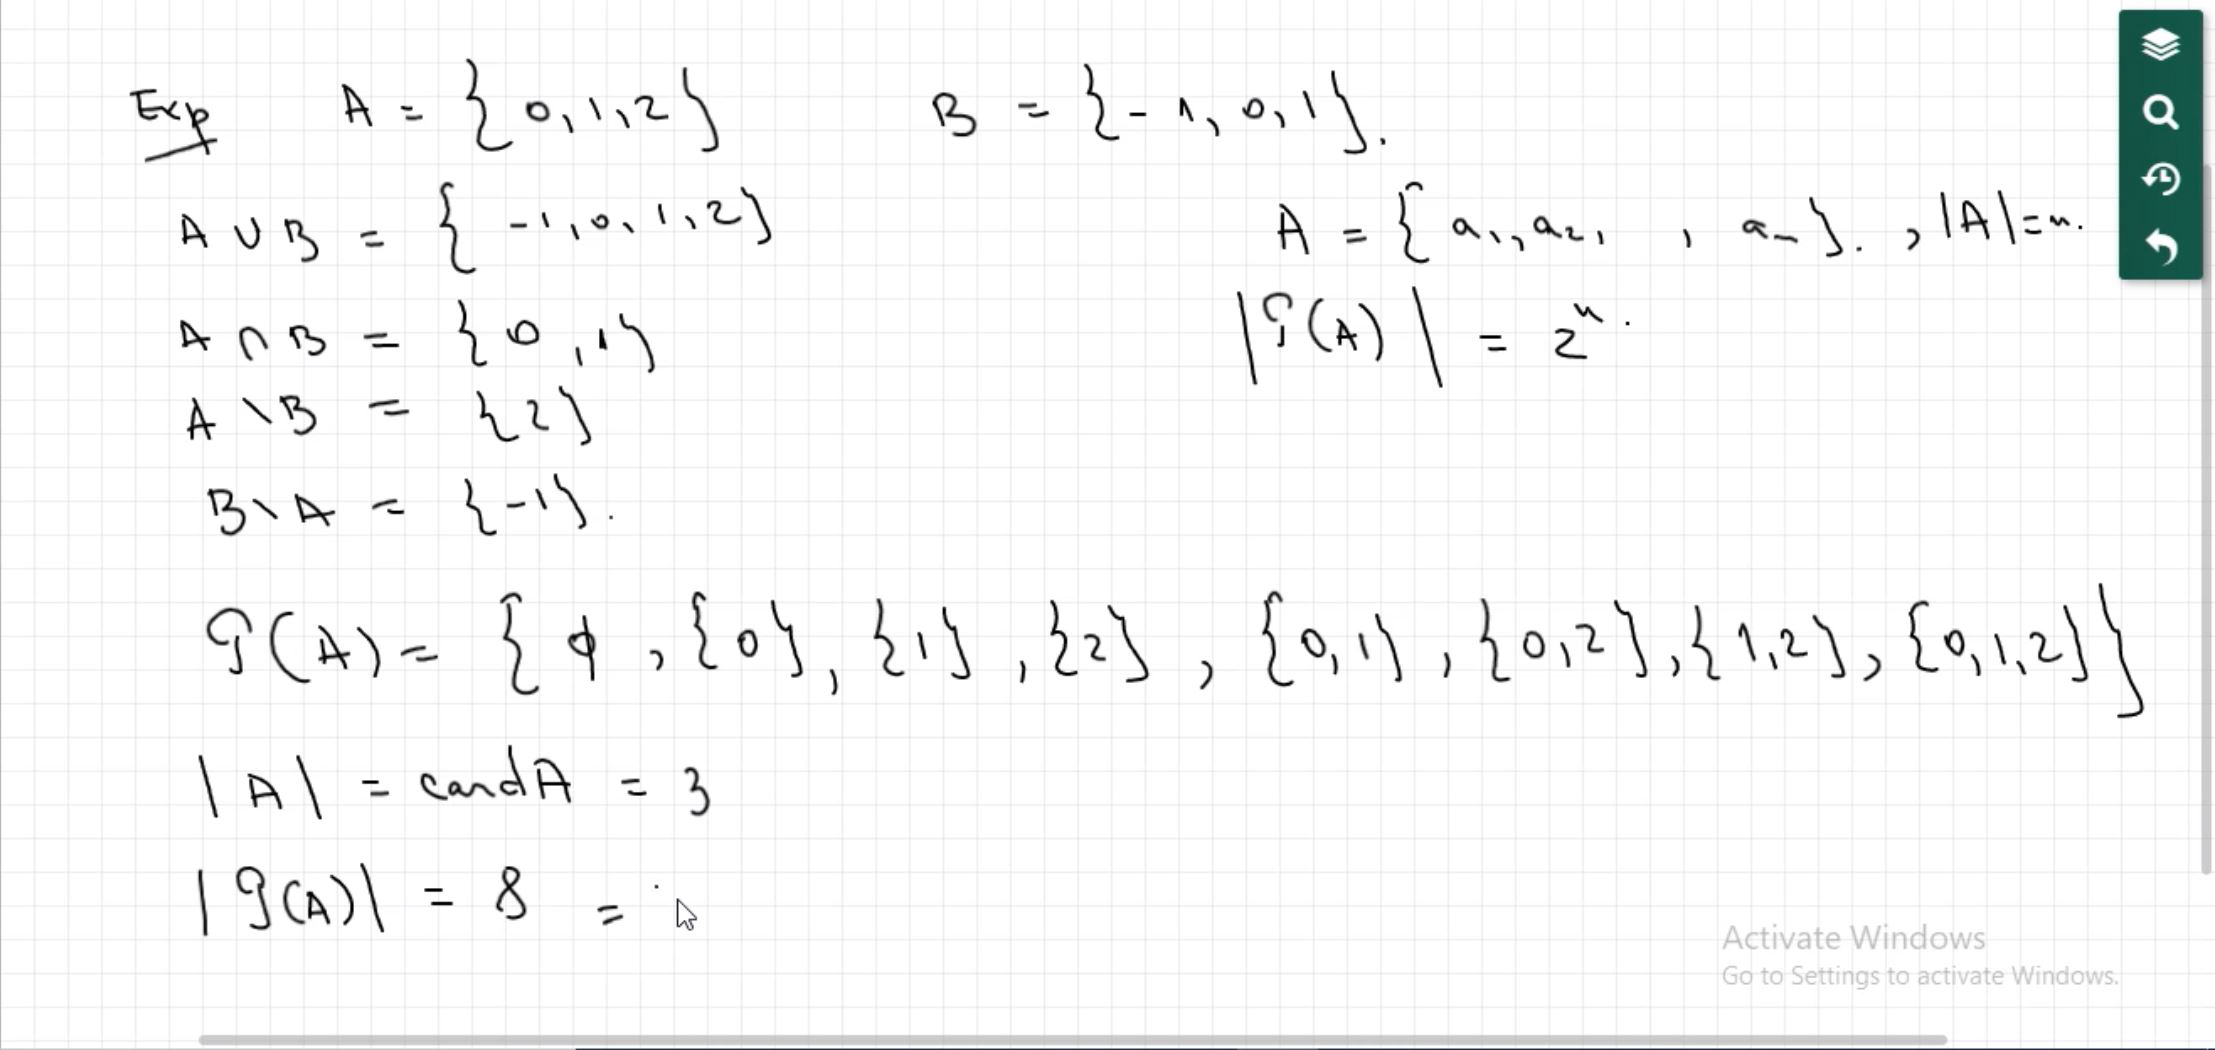 Exp A = {0,1,2} B = {-1,0,1}.
A ∪ B = {-1,0,1,2}
A = {a₁,a₂, , aₙ}. , |A|=n.
A ∩ B = {0,1}
|P(A)| = 2ⁿ.
A \ B = {2}
B \ A = {-1}.
P(A) = {ϕ,{0},{1},{2},{0,1},{0,2},{1,2},{0,1,2}}
|A| = card A = 3
|P(A)| = 8 =
Activate Windows
Go to Settings to activate Windows.